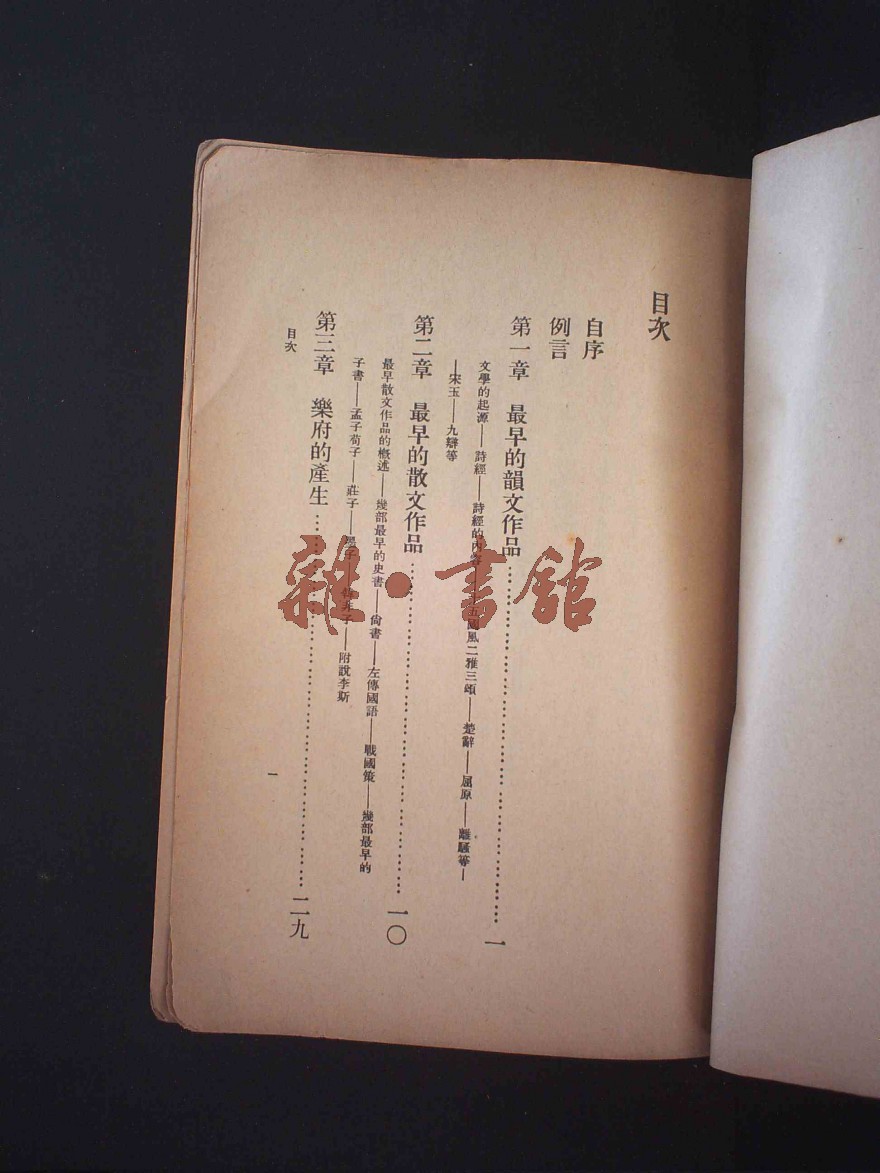 目次
自序
例言
第一章　最早的韻文作品…………一
文學的起源——詩經——詩經的內容——十五國風二雅三頌——楚辭——屈原——離騷等—
—宋玉——九辯等
第二章　最早的散文作品…………一〇
最早散文作品的概述——幾部最早的史書——尚書——左傳國語——戰國策——幾部最早的
子書——孟子荀子——莊子——墨子——韓非子——附說李斯
第三章　樂府的產生…………二九
目次
一
雜·書館